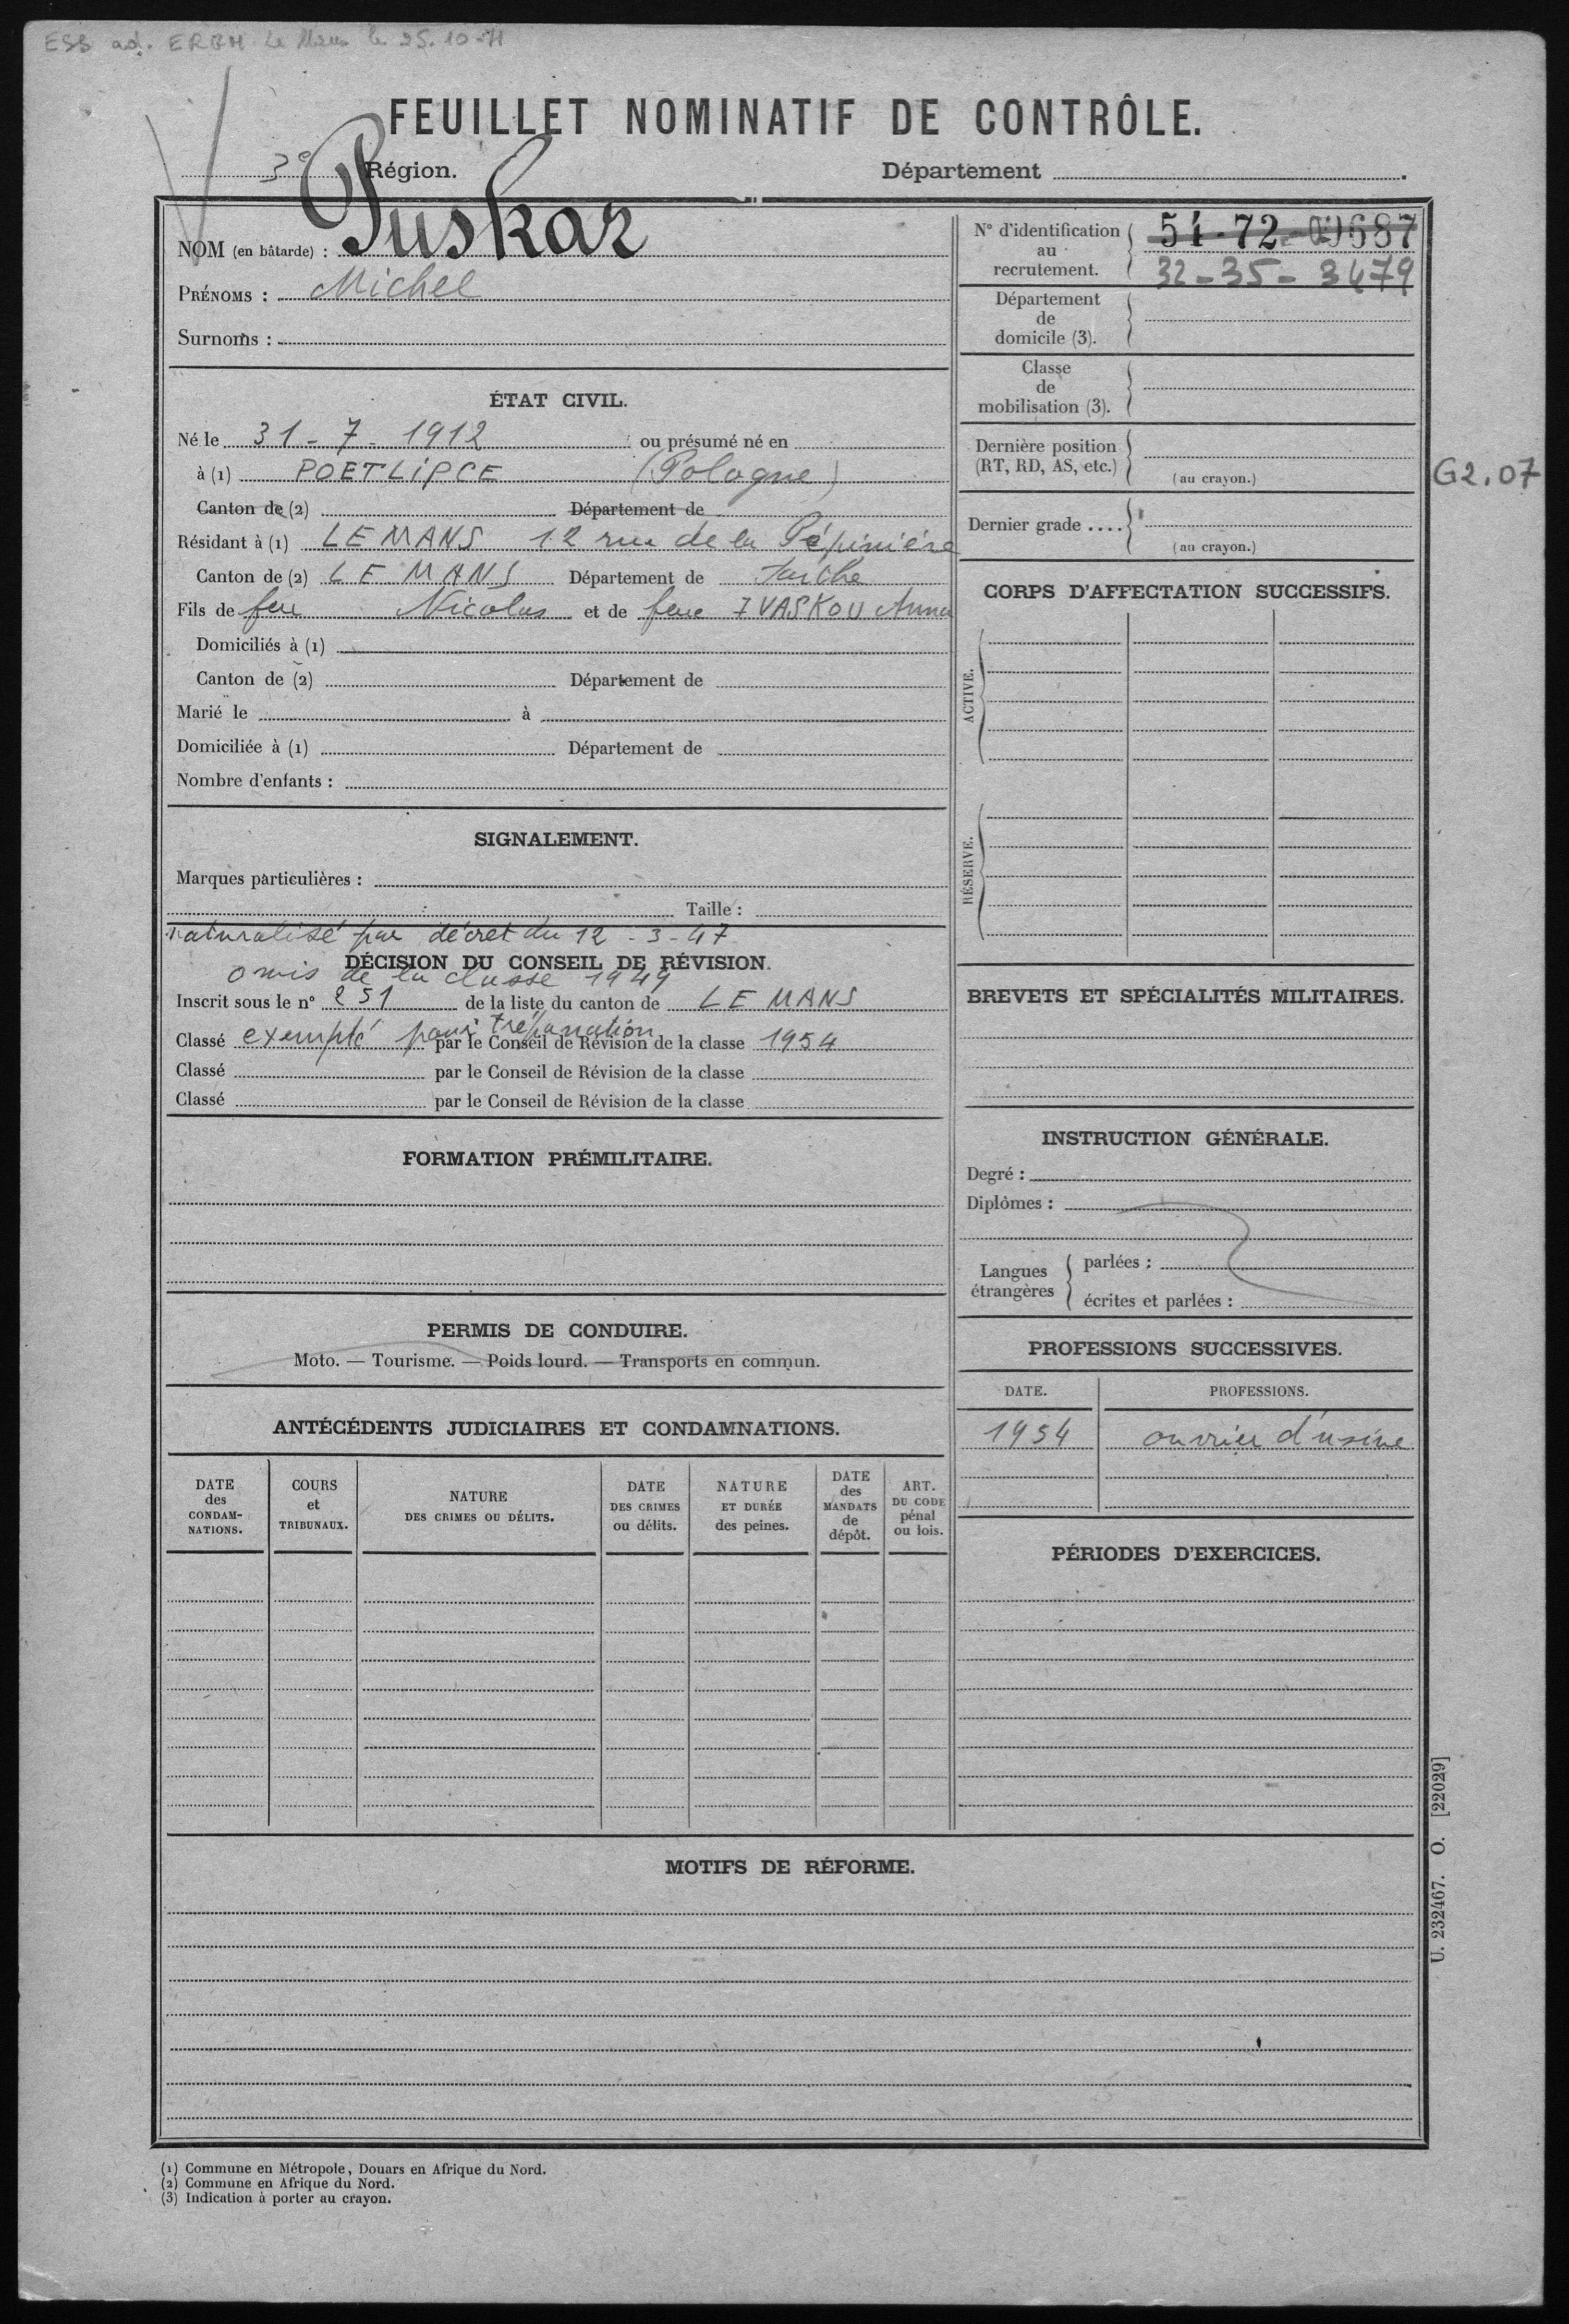 ESS ad. ERBM Le Mans le 25.10-71
FEUILLET NOMINATIF DE CONTRÔLE.
3e Région.
Département
NOM (en bâtarde) : Puskar
PRÉNOMS : Michel
Surnoms :
ÉTAT CIVIL.
Né le 31-7-1912 ou présumé né en
à (1) POETLIPCE (Pologne)
Canton de (2) Département de
Résidant à (1) LE MANS 12 rue de la Pépinière
Canton de (2) LE MANS Département de Sarthe
Fils de feu Nicolas et de feue IVASKOU Anna
Domiciliés à (1)
Canton de (2) Département de
Marié le à
Domiciliée à (1) Département de
Nombre d'enfants :
SIGNALEMENT.
Marques particulières :
Taille :
naturalisé par décret du 12-3-47
DÉCISION DU CONSEIL DE RÉVISION.
omis de la classe 1949
Inscrit sous le n° 251 de la liste du canton de LE MANS
Classé exempté pour trépanation par le Conseil de Révision de la classe 1954
Classé par le Conseil de Révision de la classe
Classé par le Conseil de Révision de la classe
FORMATION PRÉMILITAIRE.
PERMIS DE CONDUIRE.
Moto. — Tourisme. — Poids lourd. — Transports en commun.
ANTÉCÉDENTS JUDICIAIRES ET CONDAMNATIONS.
DATE des CONDAM-NATIONS.
COURS et TRIBUNAUX.
NATURE DES CRIMES OU DÉLITS.
DATE DES CRIMES ou délits.
NATURE ET DURÉE des peines.
DATE des MANDATS de dépôt.
ART. DU CODE pénal ou lois.
N° d'identification au recrutement. 54-72-09687
32-35-3479
Département de domicile (3).
Classe de mobilisation (3).
Dernière position (RT, RD, AS, etc.)
(au crayon.)
G2.07
Dernier grade ....
(au crayon.)
CORPS D'AFFECTATION SUCCESSIFS.
ACTIVE.
RÉSERVE.
BREVETS ET SPÉCIALITÉS MILITAIRES.
INSTRUCTION GÉNÉRALE.
Degré :
Diplômes :
Langues étrangères
parlées :
écrites et parlées :
PROFESSIONS SUCCESSIVES.
DATE. PROFESSIONS.
1954 ouvrier d'usine
PÉRIODES D'EXERCICES.
MOTIFS DE RÉFORME.
U. 232467. O. [22029]
(1) Commune en Métropole, Douars en Afrique du Nord.
(2) Commune en Afrique du Nord.
(3) Indication à porter au crayon.